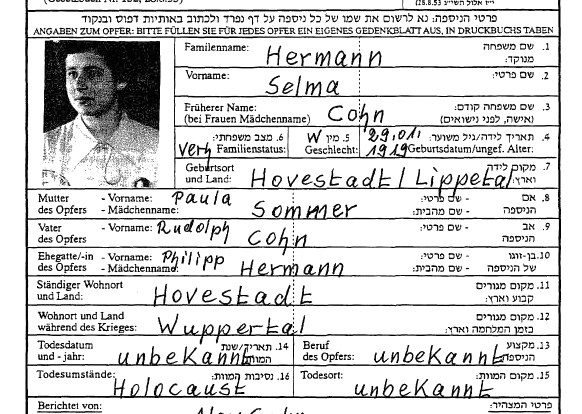 פרטי הניספה: נא לרשום את שמו של כל ניספה על דף נפרד ולכתוב באותיות דפוס ובנקוד
ANGABEN ZUM OPFER: BITTE FÜLLEN SIE FÜR JEDES OPFER EIN EIGENES GEDENKBLATT AUS, IN DRUCKBUCHS TABEN
Familienname: Hermann 1. שם משפחה מנוקד:
Vorname: Selma 2. שם פרטי:
Früherer Name: (bei Frauen Mädchenname) Cohn 3. שם משפחה קודם: (אישה, לפני נישואים)
6. מצב משפחתי: verh Familienstatus: 5. מין W Geschlecht: 4. תאריך לידה/גיל משוער: 29.01. 1919 Geburtsdatum/ungef. Alter:
Geburtsort und Land: Hovestadt/Lippetal 7. מקום לידה וארץ:
Mutter des Opfers - Vorname: Paula - Mädchenname: Sommer - שם פרטי: - שם מהבית: 8. אם הניספה
Vater des Opfers - Vorname: Rudolph Cohn - שם פרטי: 9. אב הניספה
Ehegatte/-in des Opfers - Vorname: Philipp - Mädchenname: Hermann - שם פרטי: - שם מהבית: 10. בן-זוגו של הניספה
Ständiger Wohnort und Land: Hovestadt 11. מקום מגורים קבוע וארץ:
Wohnort und Land während des Krieges: Wuppertal 12. מקום מגורים בזמן המלחמה וארץ:
Todesdatum und - jahr: unbekannt 14. תאריך/שנת המוות: Beruf des Opfers: unbekannt 13. מקצוע הניספה:
Todesumstände: Holocaust 16. נסיבות המוות: Todesort: unbekannt 15. מקום המוות:
Berichtet von: פרטי המצהיר: